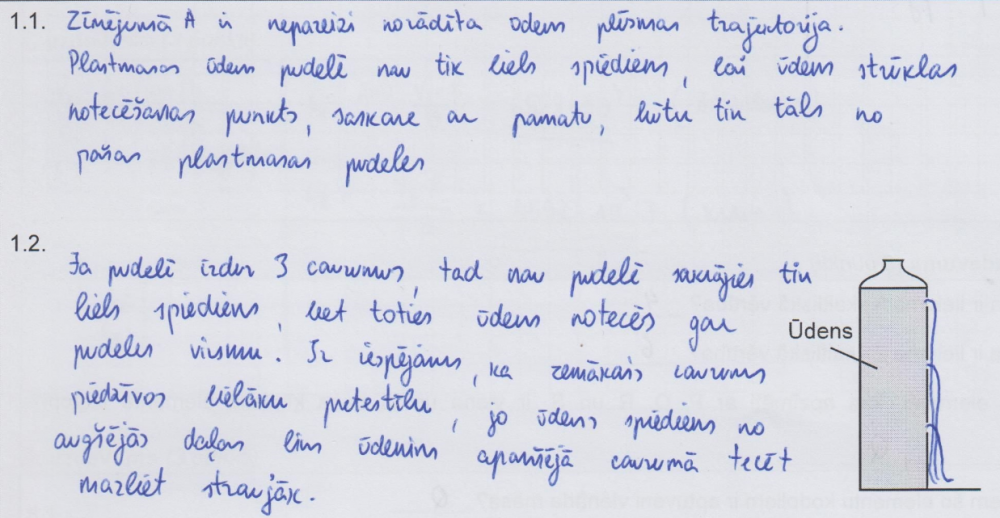 1.1. Zīmējumā A ir nepareizi norādīta ūdens plūsmas trajektorija.
Plastmasas ūdens pudelē nav tik liels spiediens, lai ūdens strūklas
notecēšanas punkts, saskare ar pamatu, būtu tik tāls no
pašas plastmasas pudeles
1.2. Ja pudelē izdur 3 caurumus, tad nav pudelē sakrājies tik
liels spiediens, bet toties ūdens notecēs gar
pudeles virsmu. Ir iespējams, ka zemākais caurums
piedzīvos lielāku pretestību, jo ūdens spiediens no
augšējās daļas liks ūdenim apakšējā caurumā tecēt
mazliet straujāk.
Ūdens